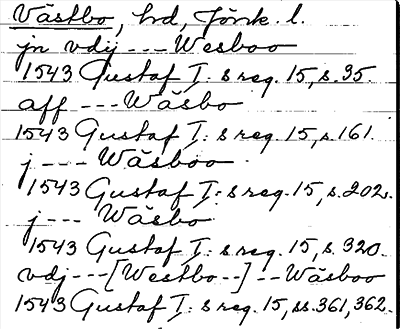 Västbo, hd, Jönk. l.
jn vdij --- Wesboo
1543 Gustaf I: s reg. 15, s. 35.
aff --- Wäsbo
1543 Gustaf I: s reg. 15, s. 161.
j --- Wäsboo
1543 Gustaf I: s reg. 15, s. 202.
j --- Wäsbo
1543 Gustaf I: s reg. 15, s. 320.
vdj --- [Westbo--] -- Wäsboo
1543 Gustaf I: s reg. 15, ss. 361, 362.